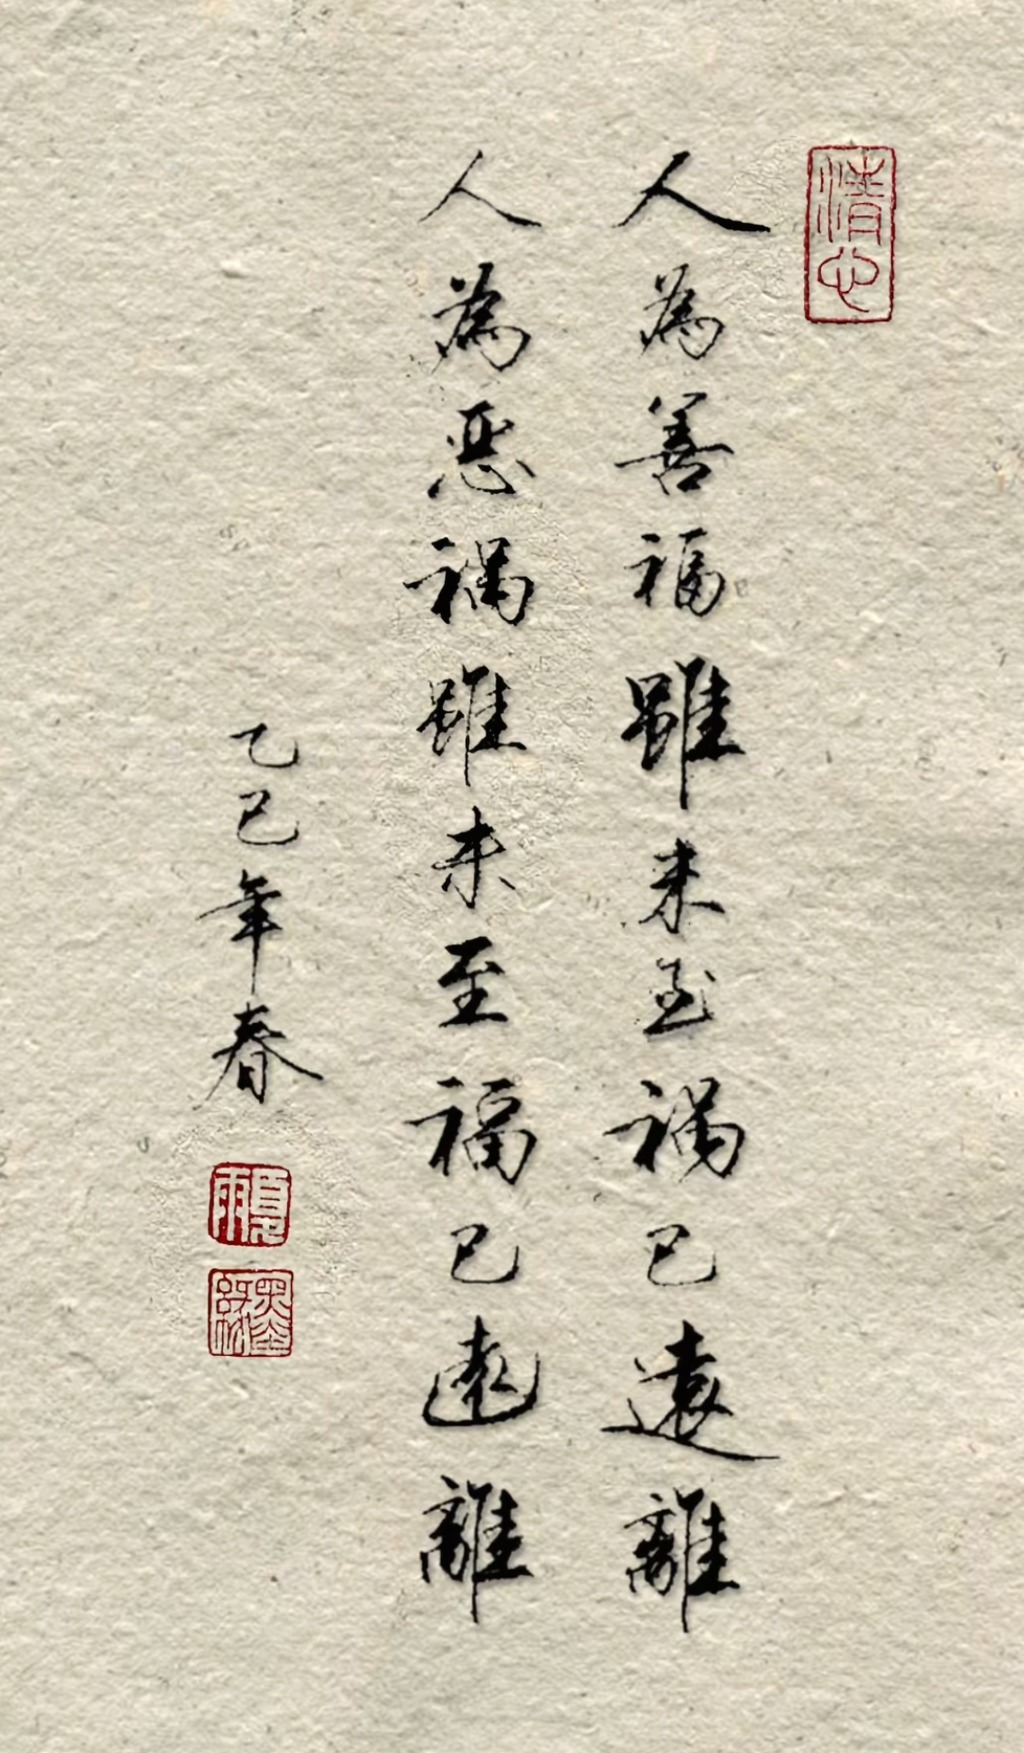 清心
人為善福雖未至禍已遠離
人為惡禍雖未至福已遠離
乙巳年春
夏雨
墨緣